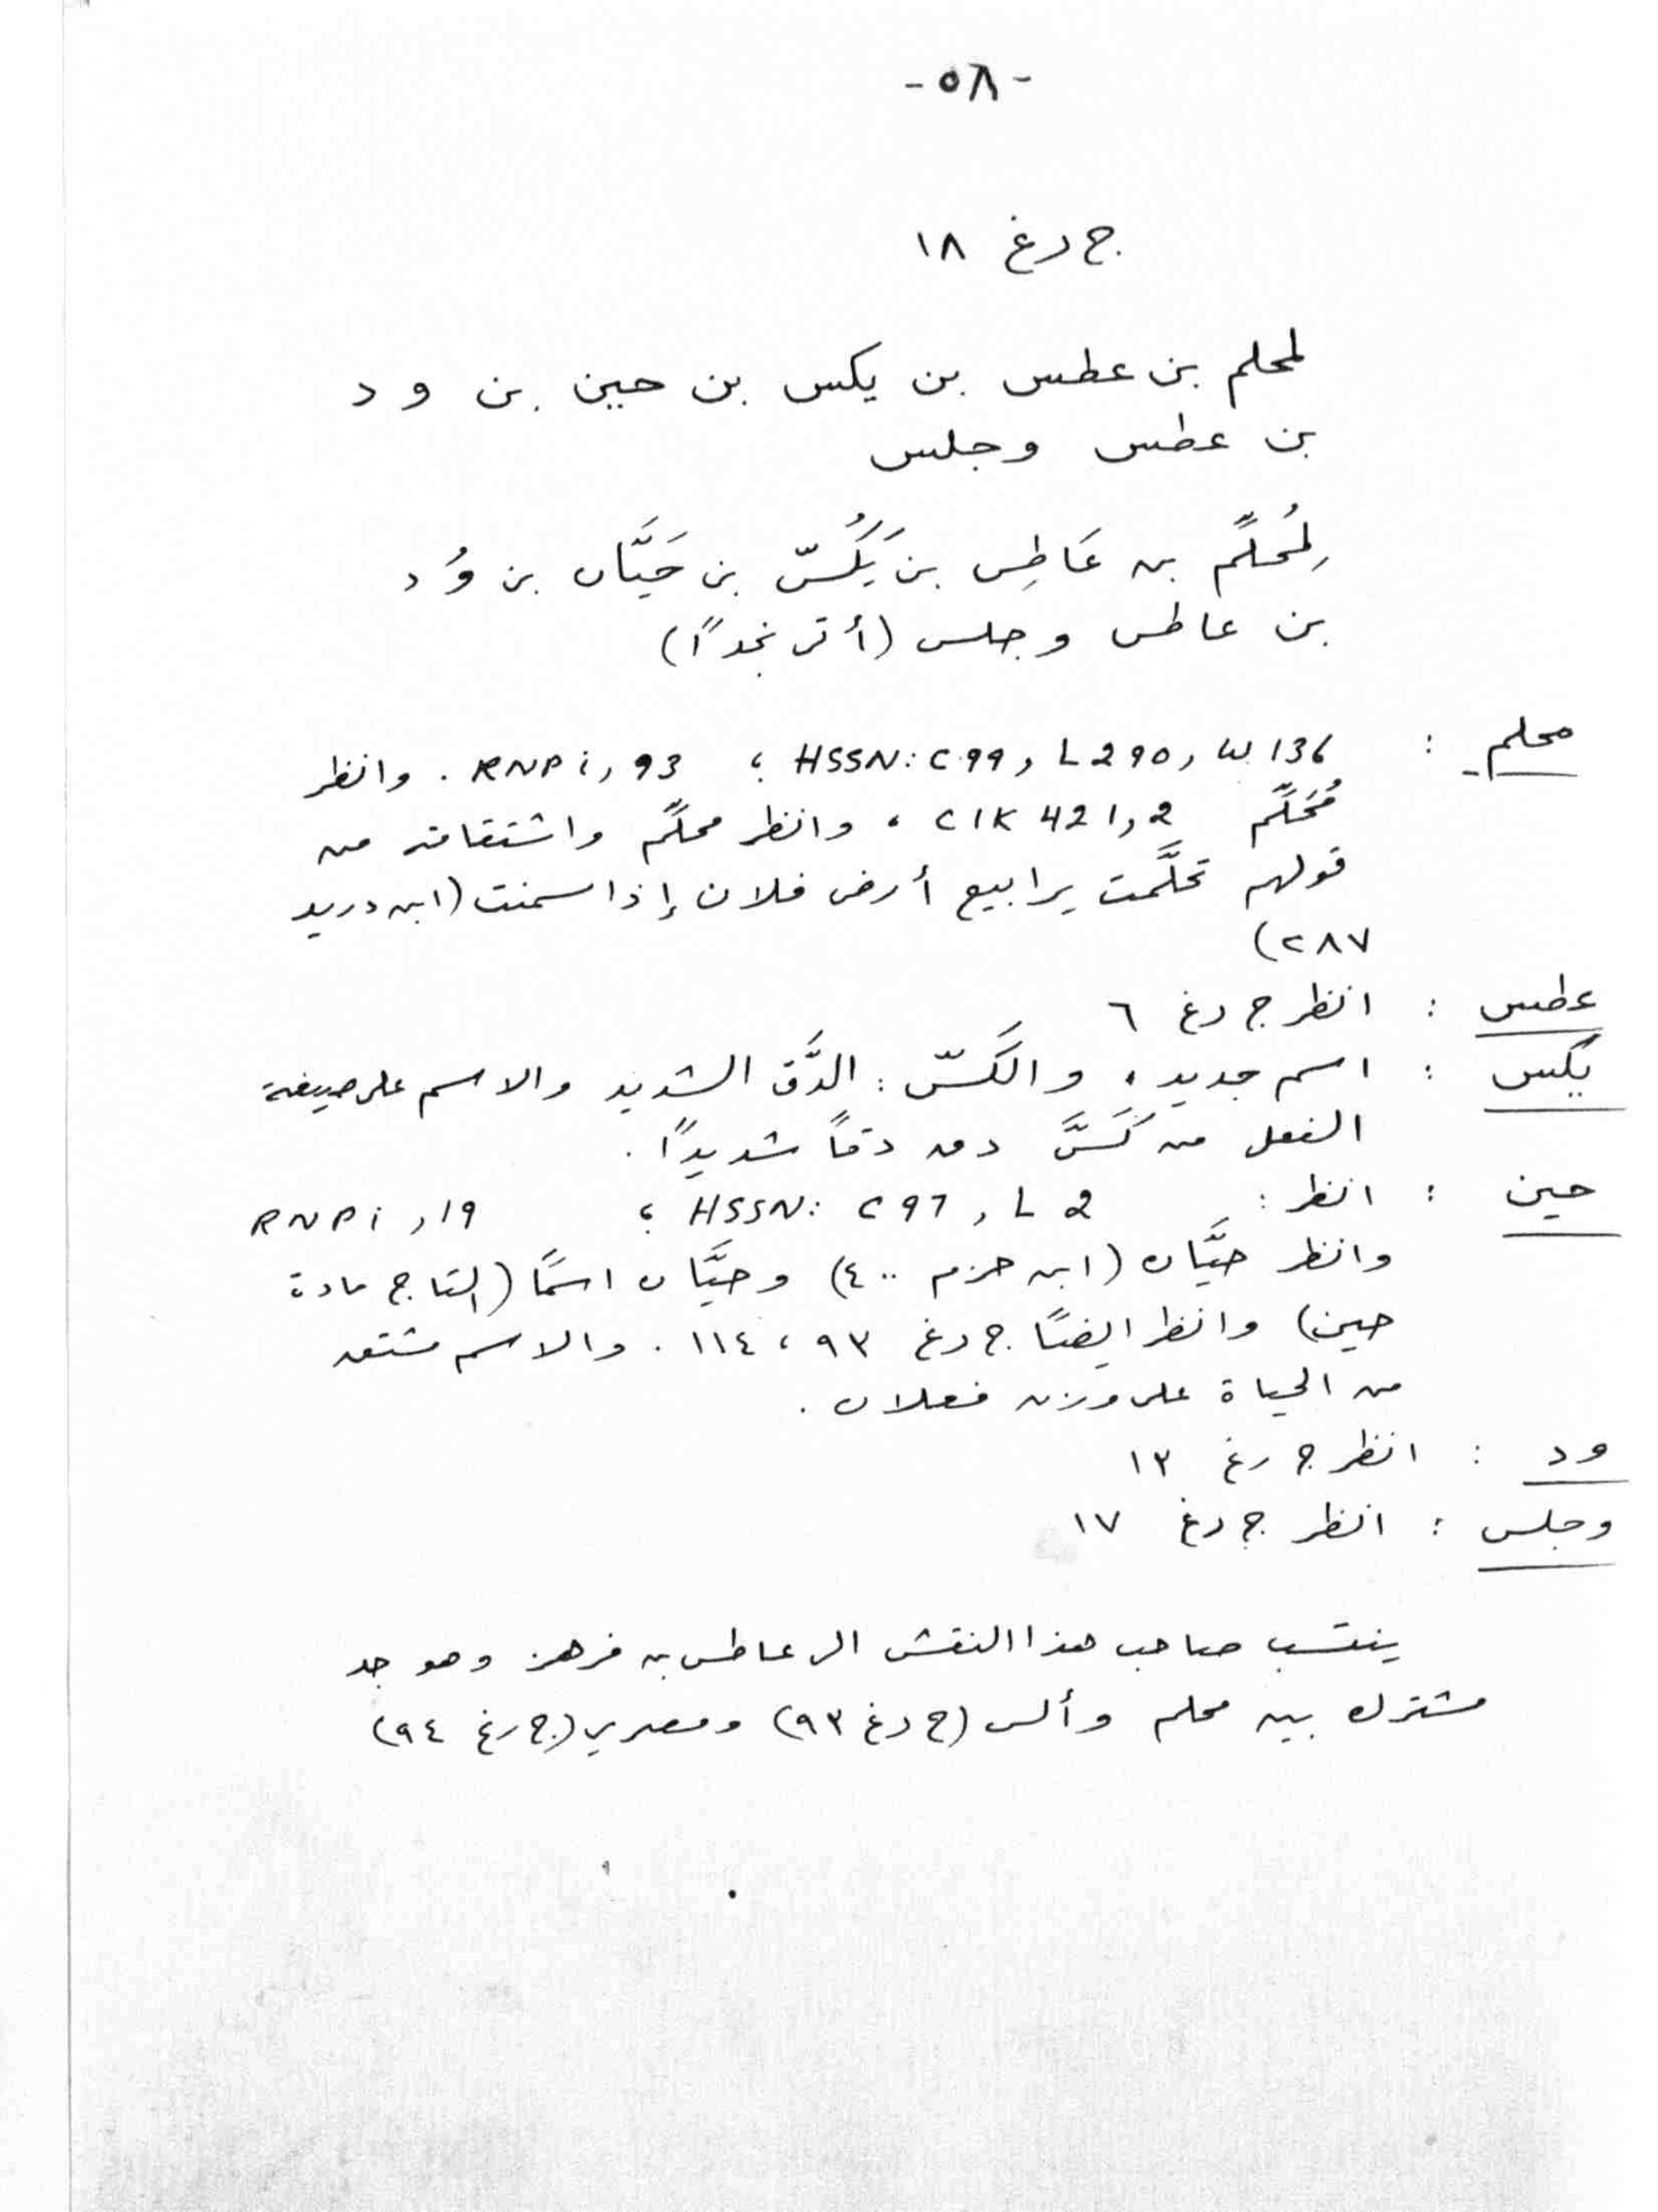 -٥٨-
ج رغ ١٨
لمحلم بن عطس بن يكس بن حين بن ود
بن عطس وجلس
لِمُحلَّم بن عَاطِس بن يَكُسّ بن حَيَّان بن وُد
بن عاطس وجلس (أتى نجدًا)
محلم : HSSN: C99, L290, W136 ؛ RNPi, 93 . وانظر
مُحَلَّم CIK 421,2 ، وانظر محلَّم واشتقاقه من
قولهم تحلَّمت يرابيع أرض فلان إذا سمنت (ابن دريد
٢٨٧)
عطس : انظر ج رغ ٦
يكس : اسم جديد، والكَسّ : الدَّق الشديد والاسم على صيغة
الفعل من كَسَّ دق دقاً شديدًا .
حين : انظر : HSSN: C97, L2 ؛ RNPi, 19
وانظر حيَّان (ابن حزم ٤٠٠) وحيَّان اسمًا (التاج مادة
حين) وانظر ايضًا ج رغ ٩٣ ، ١١٤ . والاسم مشتق
من الحياة على وزن فعلان .
ود : انظر ج رغ ١٣
وجلس : انظر ج رغ ١٧
ينتسب صاحب هذا النقش الى عاطس بن فرهز وهو جد
مشترك بين محلم وألس (ج رغ ٩٣) ومصري (ج رغ ٩٤)